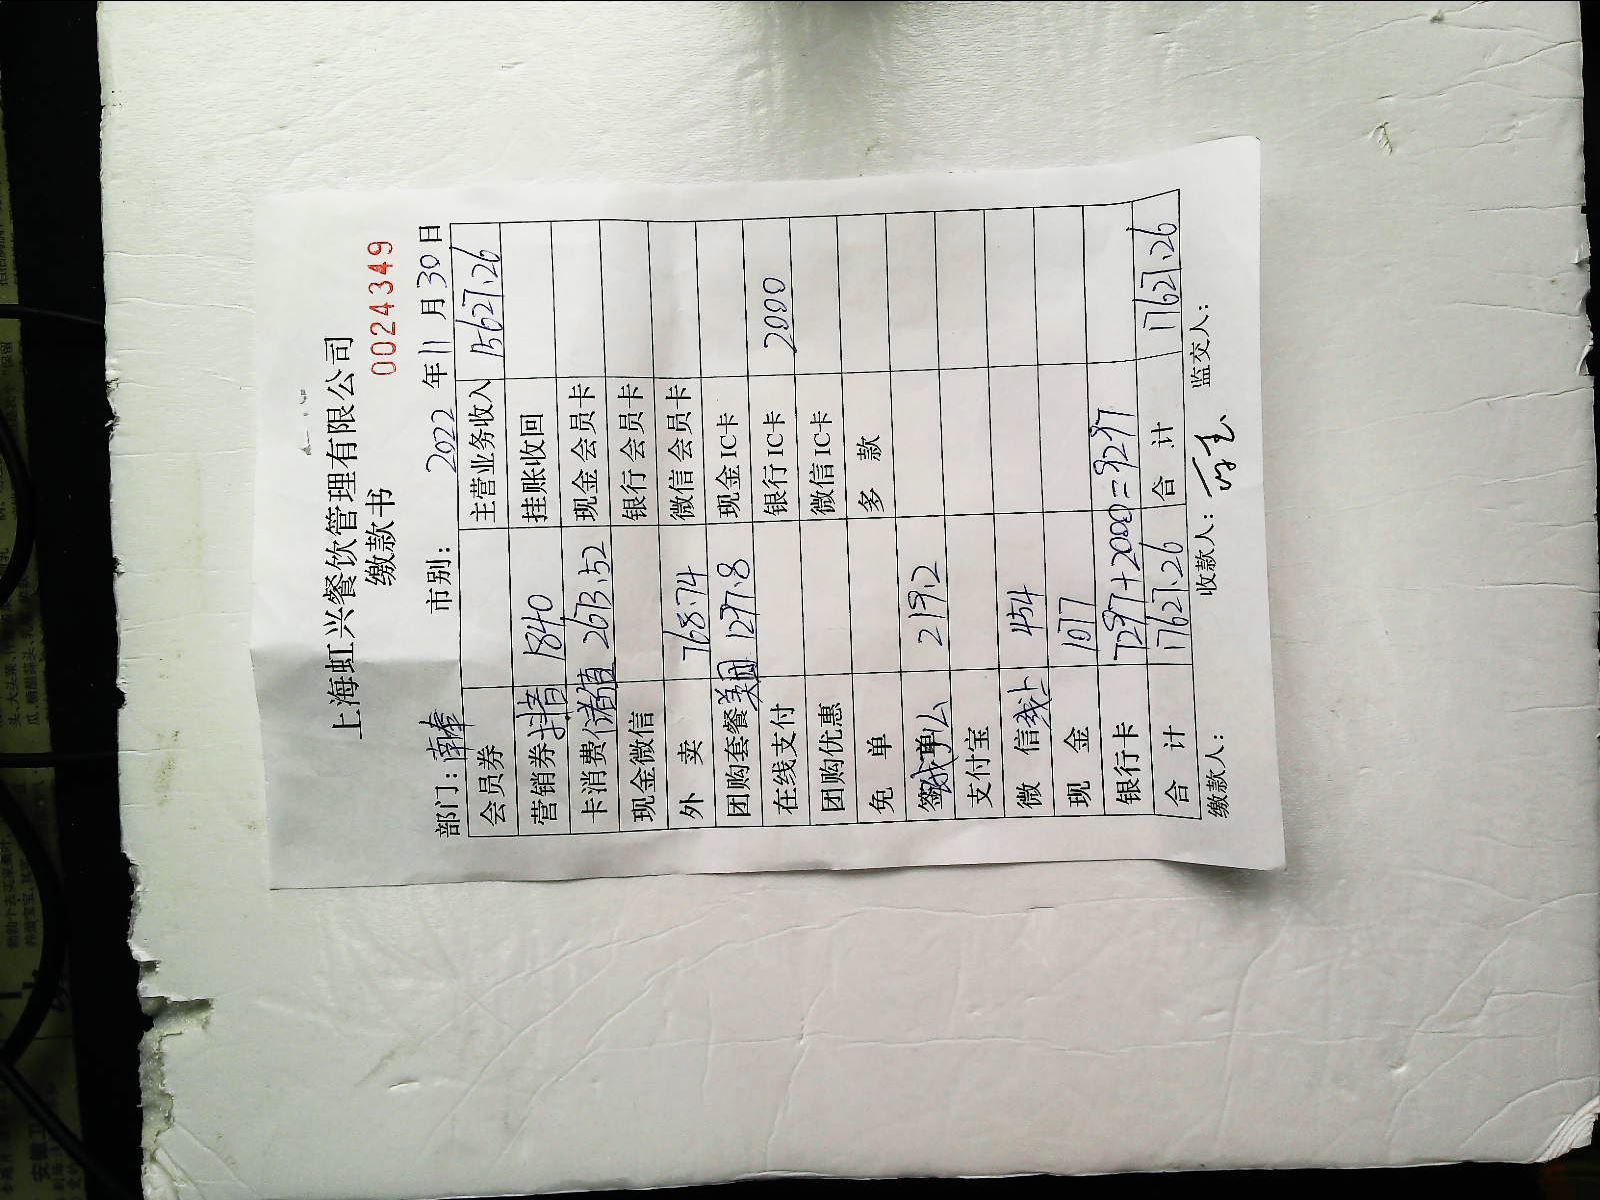 上海虹兴餐饮管理有限公司
缴款书 0024349
部门：南奉 市别： 2022 年 11 月 30 日
会员券 主营业务收入 15627.26
营销券 抖音 1840 挂账收回
卡消费 储值 2673.52 现金会员卡
现金微信 银行会员卡
外 卖 768.74 微信会员卡
团购套餐 美团 1297.8 现金IC卡
在线支付 银行IC卡 2000
团购优惠 微信IC卡
免 单 多 款
219.2
支付宝
微 信 线上 454
现 金 1077
银行卡 7297+2000=9297
合 计 17627.26 合 计 17627.26
缴款人： 收款人： 监交人：